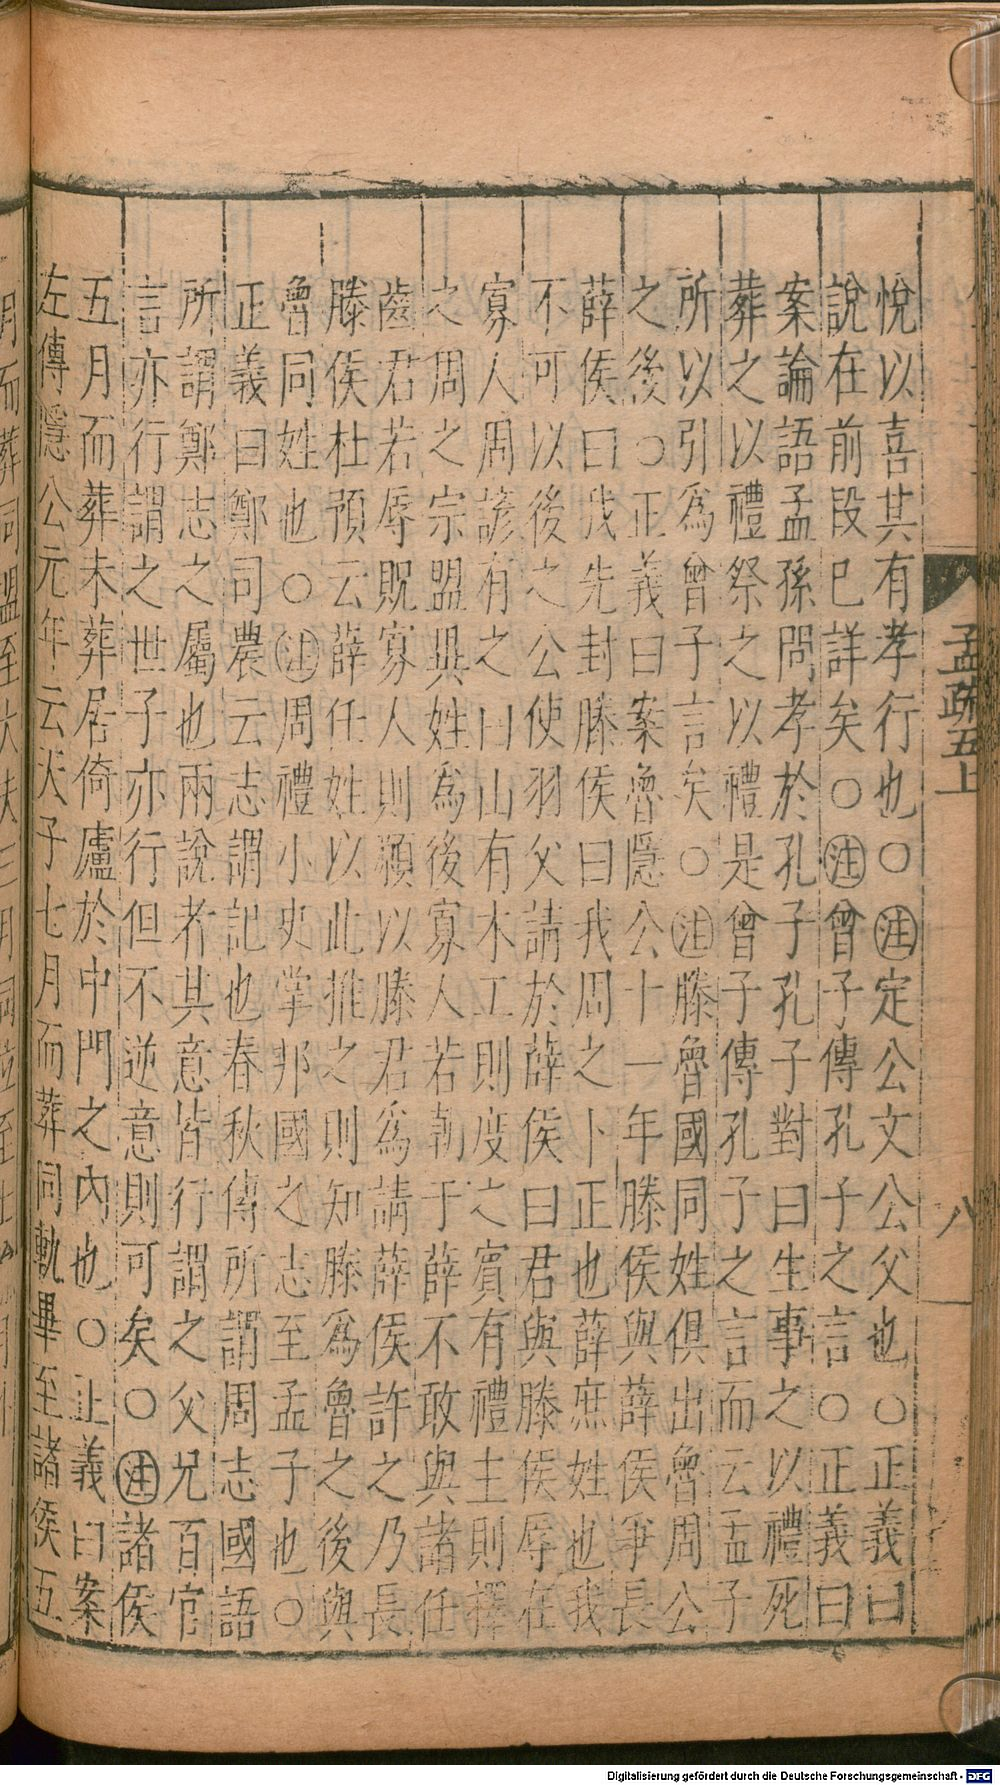 悅以喜其有孝行也○注定公文公父也○正義曰
說在前段已詳矣○注曾子傳孔子之言○正義曰
案論語孟孫問孝於孔子孔子對曰生事之以禮死
葬之以禮祭之以禮是曾子傳孔子之言而云孟子
所以引爲曾子言矣○注滕魯國同姓俱出魯周公
之後○正義曰案魯隱公十一年滕侯與薛侯爭長
薛侯曰我先封滕侯曰我周之卜正也薛庶姓也我
不可以後之公使羽父請於薛侯曰君與滕侯辱在
寡人周諺有之曰山有木工則度之賓有禮主則擇
之周之宗盟異姓爲後寡人若朝于薛不敢與諸任
齒君若辱貺寡人則願以滕君爲請薛侯許之乃長
滕侯杜預云薛任姓以此推之則知滕爲魯之後與
魯同姓也○注周禮小史掌邦國之志至孟子也○
正義曰鄭司農云志謂記也春秋傳所謂周志國語
所謂鄭志之屬也兩說者其意皆行謂之父兄百官
言亦行謂之世子亦行但不逆意則可矣○注諸侯
五月而葬未葬居倚廬於中門之內也○正義曰案
左傳隱公元年云天子七月而葬同軌畢至諸侯五
孟疏五上
八
月而葬同盟至大夫三月同位至士
Digitalisierung gefördert durch die Deutsche Forschungsgemeinschaft - DFG